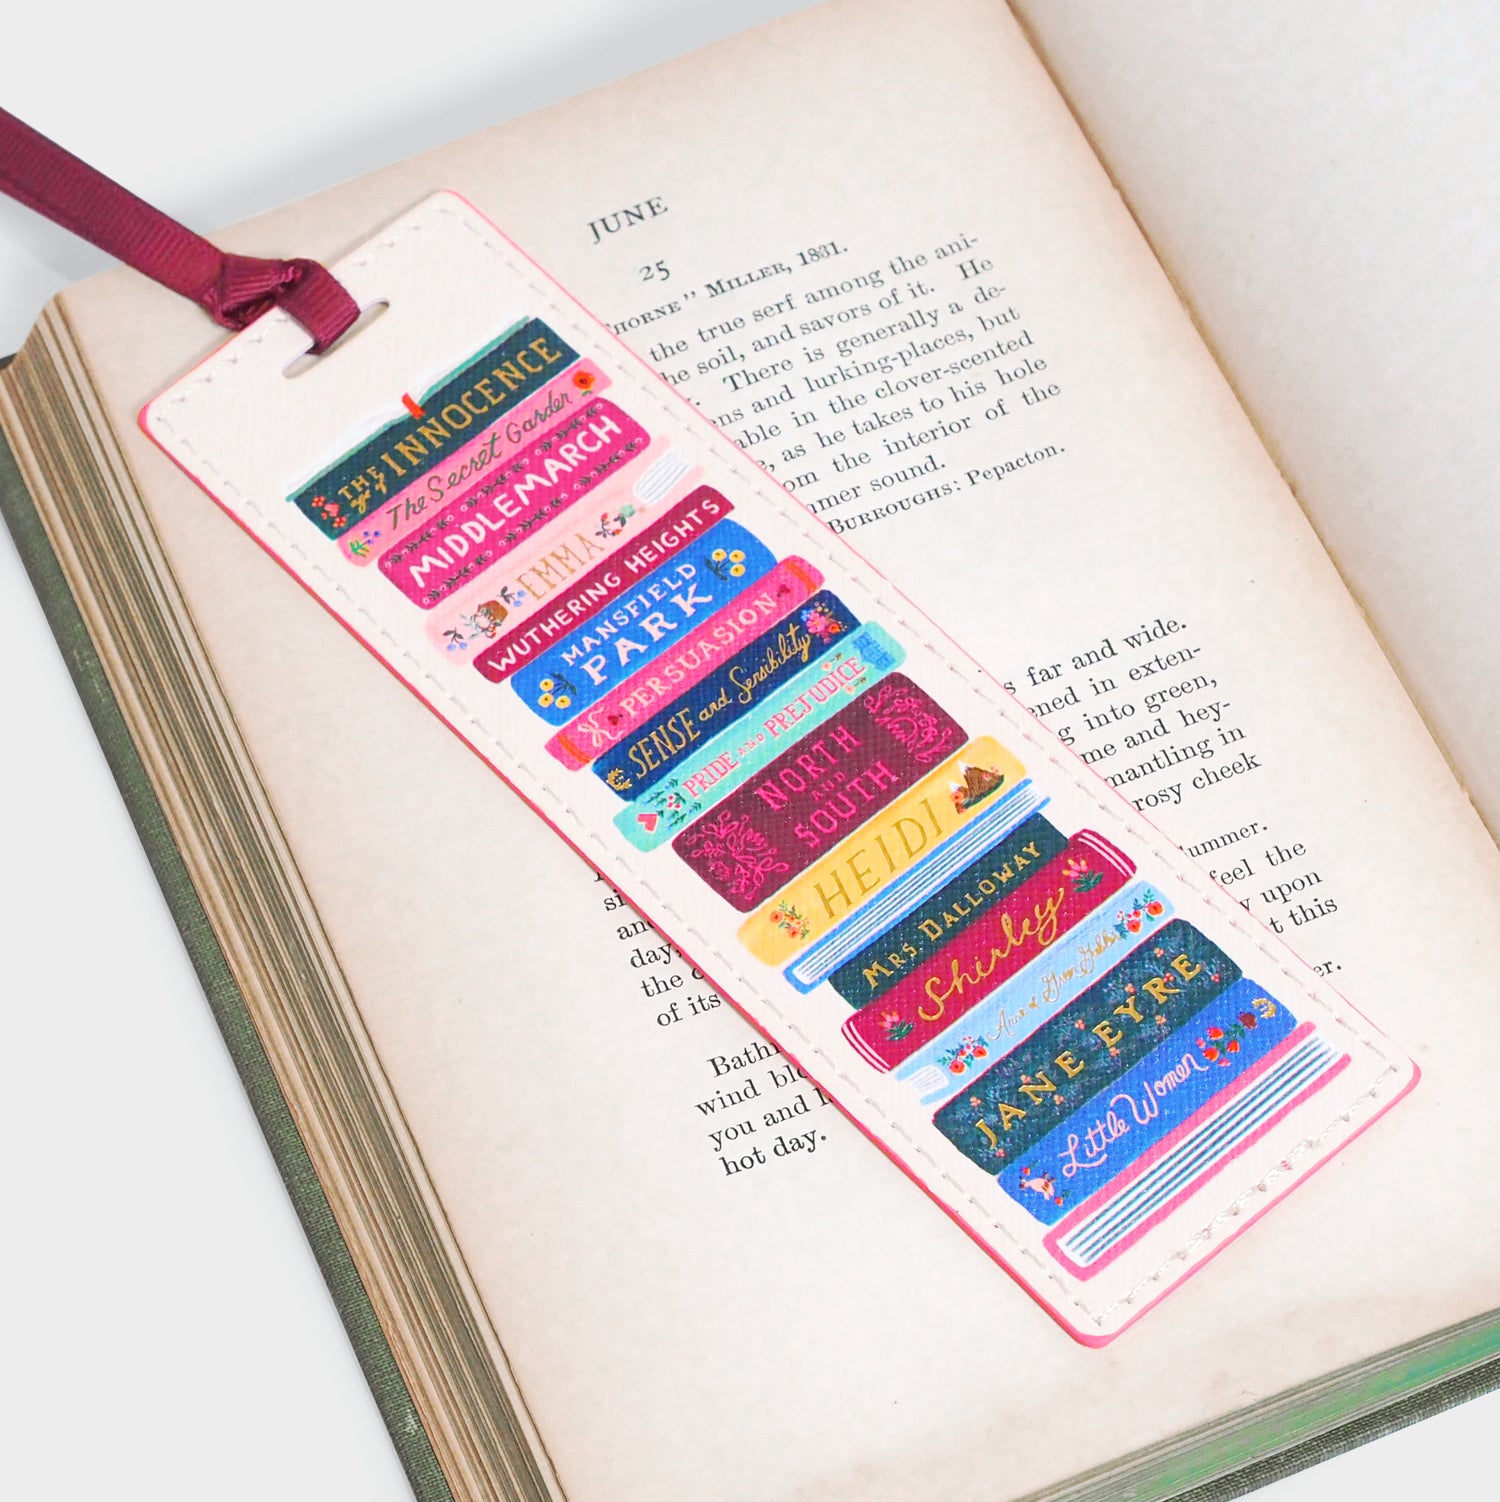 JUNE
25
HORNE" MILLER, 1831.
the true serf among the ani-
he soil, and savors of it. He
There is generally a de-
ens and lurking-places, but
able in the clover-scented
, as he takes to his hole
om the interior of the
mmer sound.
BURROUGHS: Pepacton.
s far and wide.
ened in exten-
g into green,
me and hey-
mantling in
rosy cheek
ummer.
feel the
y upon
t this
er.
si
and
day,
the
of its
Bath
wind blo
you and
hot day.
THE
age of INNOCENCE
The Secret Garden
MIDDLEMARCH
EMMA
WUTHERING HEIGHTS
MANSFIELD
PARK
PERSUASION
SENSE and Sensibility
PRIDE AND PREJUDICE
NORTH
AND
SOUTH
HEIDI
MRS DALLOWAY
Shirley
Anne of Green Gables
JANE EYRE
Little Women